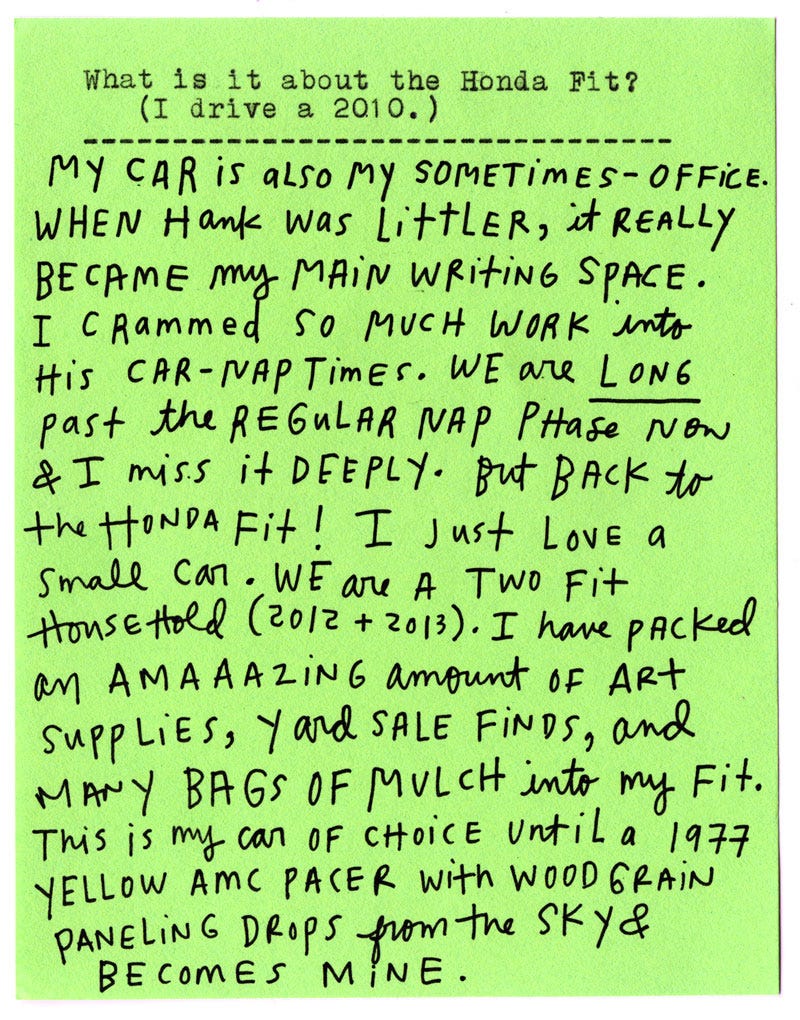 What is it about the Honda Fit?
(I drive a 2010.)
MY CAR is also MY SOMETIMES-OFFICE.
WHEN Hank was LittLER, it REALLY
BECAME my MAIN WRiting SPACE.
I CRammed SO MUCH WORK into
His CAR-NAP Times. WE are LONG
past the REGULAR NAP PHase NOW
& I miss it DEEPLY. But BACK to
the HONDA Fit! I Just LOVE a
small car. WE are A TWO Fit
HOUSEHold (2012 + 2013). I have PACKed
an AMAAAZING amount OF ARt
SUPPLiES, Yard SALE FiNDS, and
MANY BAGS OF MULCH into my Fit.
This is my car OF CHOICE Until a 1977
YELLOW AMC PACER with WOODGRAIN
PANELING DROPS from the SKY &
BECOMES MiNE.